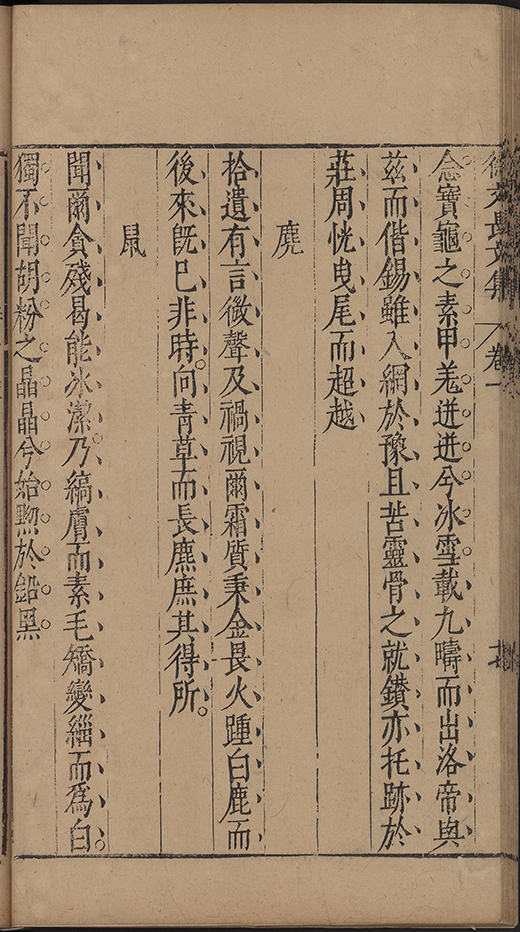 徐文長文集 卷一
念寶龜之素甲羌迸迸兮冰雪戴九疇而出洛帝與
茲而偕錫雖入網於豫且苦靈骨之就鑚亦托跡於
莊周恍曳尾而超越
麂
拾遺有言微聲及禍視爾霜質秉金畏火踵白鹿而
後來旣已非時。向青草而長麃庶其得所。
鼠
聞爾貪殘曷能冰潔。乃縞膚而素毛矯變緇而爲白。
獨不聞胡粉之晶晶兮始黝於鉛黑